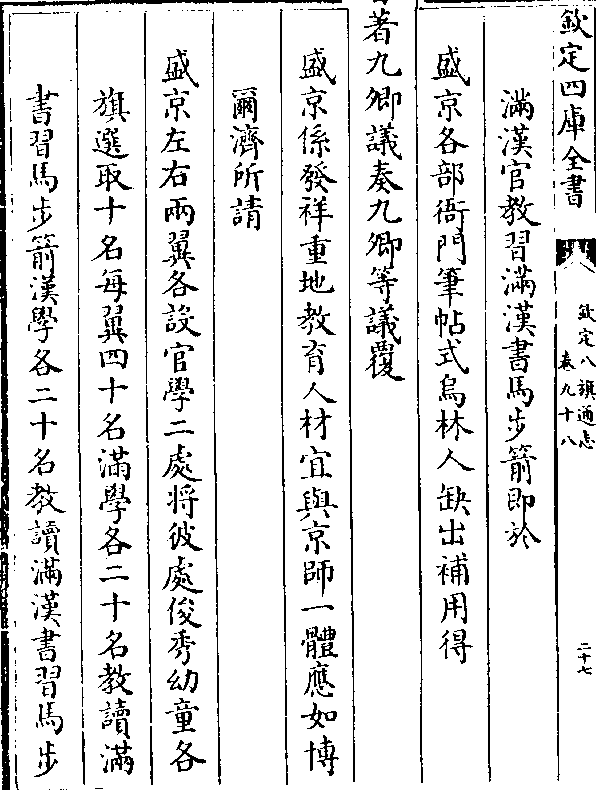 欽定四庫全書
欽定八旗通志
卷九十八
二十七
滿漢官教習滿漢書馬步箭即於
盛京各部衙門筆帖式烏林人缺出補用得
著九卿議奏九卿等議覆
盛京係發祥重地教育人材宜與京師一體應如博
爾濟所請
盛京左右兩翼各設官學二處將彼處俊秀幼童各
旗選取十名每翼四十名滿學各二十名教讀滿
書習馬步箭漢學各二十名教讀滿漢書習馬步